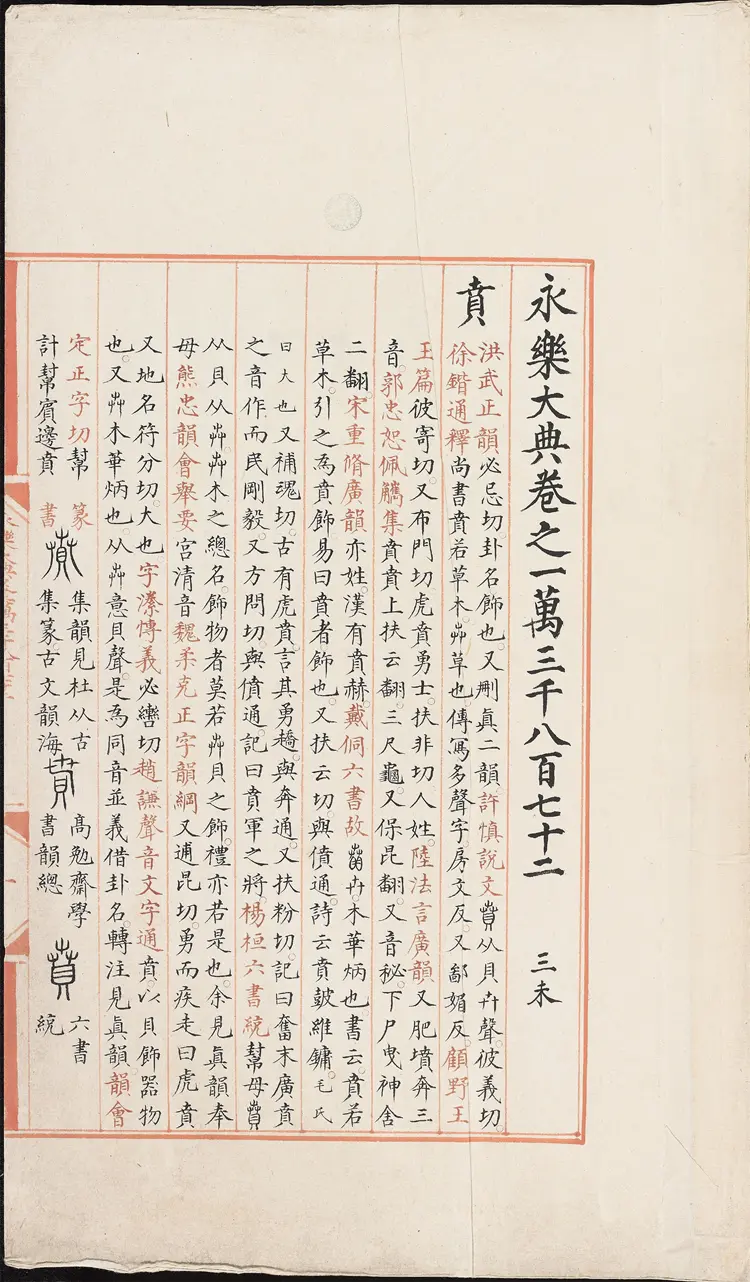 永樂大典卷之一萬三千八百七十二 三未
賁
洪武正韻必忌切卦名飾也又刪眞二韻許愼說文賁从貝卉聲彼義切
徐鍇通釋尚書賁若草木艸草也傳寫多聲字房文反又鄙媚反顧野王
玉篇彼寄切又布門切虎賁勇士扶非切人姓陸法言廣韻又肥墳奔三
音郭忠恕佩觿集賁賁上扶云翻三尺龜又保昆翻又音秘下尸曳神舍
二翻宋重脩廣韻亦姓漢有賁赫戴侗六書故 卉木華炳也書云賁若
草木引之爲賁飾易曰賁者飾也又扶云切與僨通詩云賁皷維鏞毛氏
曰大也又補魂切古有虎賁言其勇趫與奔通又扶粉切記曰奮末廣賁
之音作而民剛毅又方問切與僨通記曰賁軍之將楊桓六書統幫母賁
从貝从芔芔木之總名飾物者莫若芔貝之飾禮亦若是也余見眞韻奉
母熊忠韻會舉要宮清音魏柔克正字韻綱又逋昆切勇而疾走曰虎賁
又地名符分切大也字潫愽義必轡切趙謙聲音文字通賁以貝飾器物
也又芔木華炳也从芔意貝聲是爲同音並義借卦名轉注見眞韻韻會
定正字切幫
計幫賓邊賁
篆
書
集韻見杜从古
集篆古文韻海
高勉齋學
書韻總
六書
統